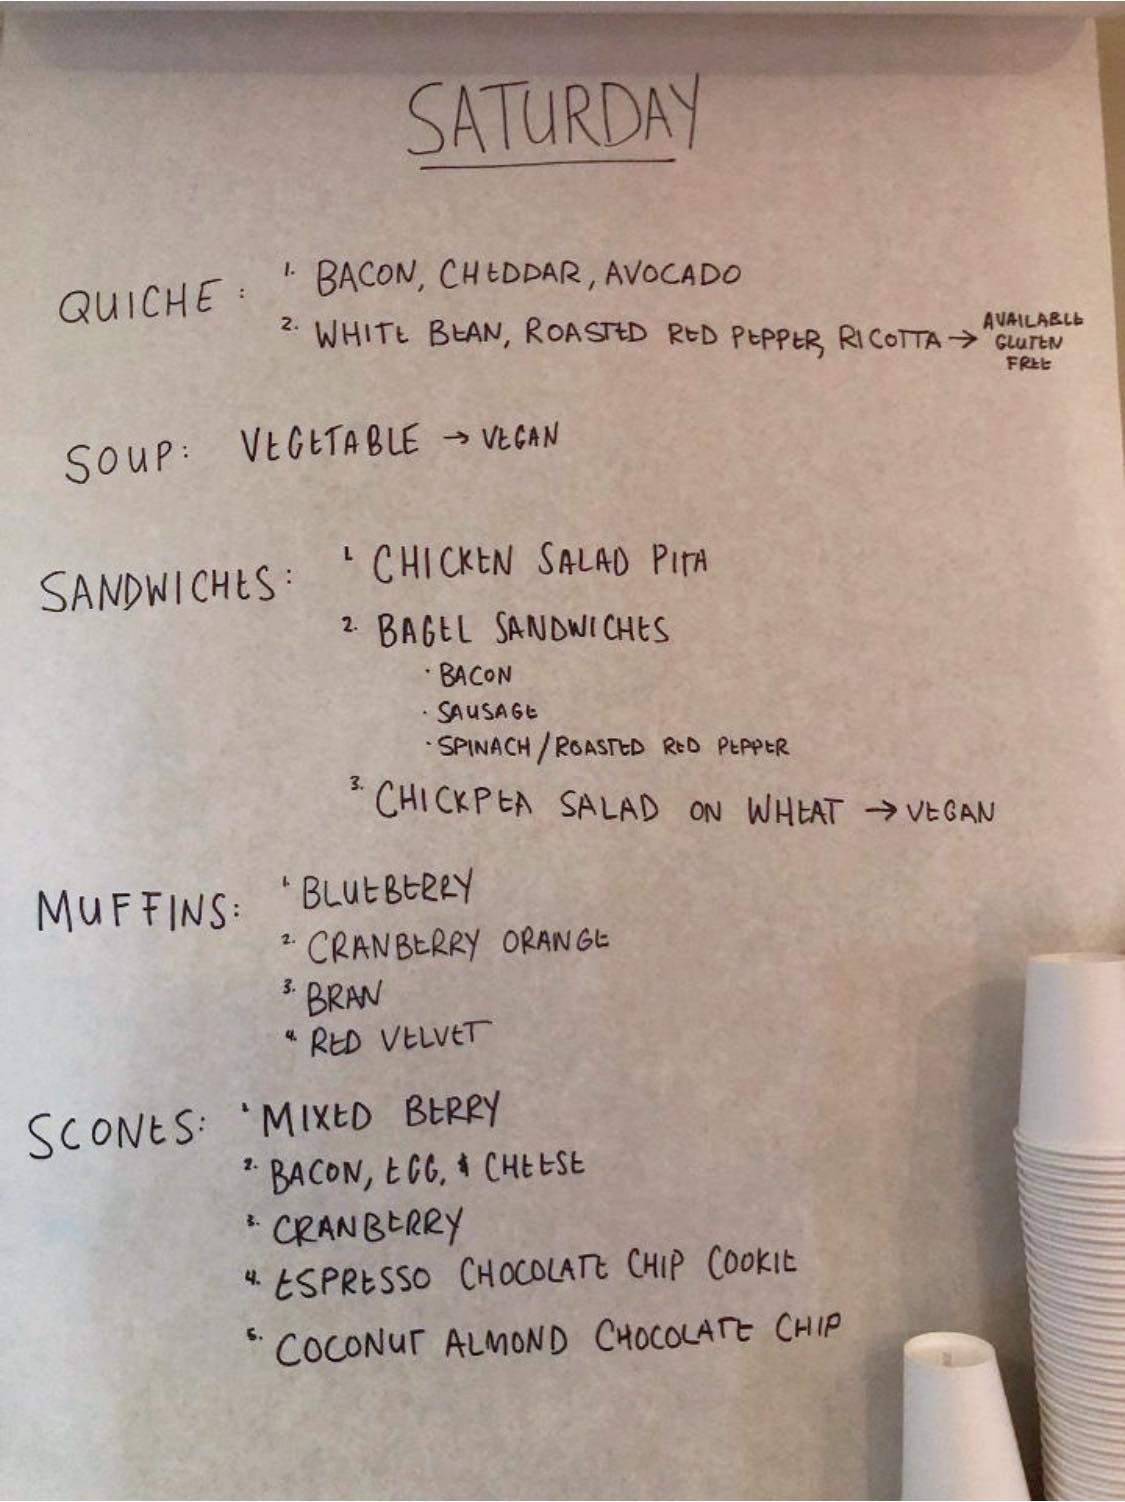 SATURDAY
QUICHE: 1. BACON, CHEDDAR, AVOCADO
2. WHITE BEAN, ROASTED RED PEPPER, RICOTTA → AVAILABLE
GLUTEN
FREE
SOUP: VEGETABLE → VEGAN
SANDWICHES: 1. CHICKEN SALAD PITA
2. BAGEL SANDWICHES
· BACON
· SAUSAGE
· SPINACH/ROASTED RED PEPPER
3. CHICKPEA SALAD ON WHEAT → VEGAN
MUFFINS: 1. BLUEBERRY
2. CRANBERRY ORANGE
3. BRAN
4. RED VELVET
SCONES: 1. MIXED BERRY
2. BACON, EGG, & CHEESE
3. CRANBERRY
4. ESPRESSO CHOCOLATE CHIP COOKIE
5. COCONUT ALMOND CHOCOLATE CHIP